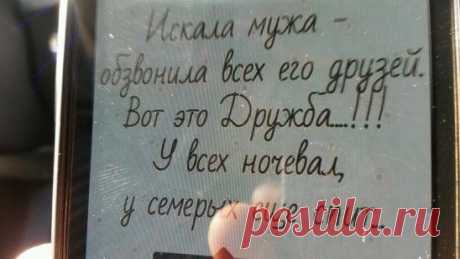 Искала мужа -
обзвонила всех его друзей.
Вот это Дружба....!!!
У всех ночевал,
у семерых еще спит...
postila.ru